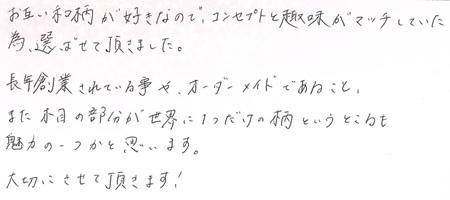 お互い和柄が好きなので、コンセプトと趣味がマッチしていた
為、選ばせて頂きました。
長年創業されている事や、オーダーメイドであること、
また木目の部分が世界に1つだけの柄というところも
魅力の一つかと思います。
大切にさせて頂きます!